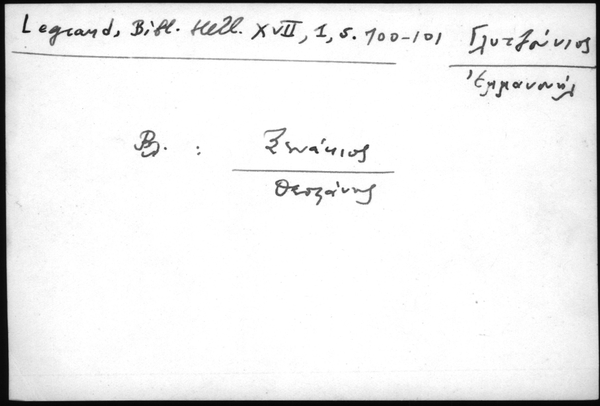 Legrand, Bibl. Hell. XVII, 1, S. 100-101 Γλυτζούνιος
Ἐμμανουήλ
Βλ. : Ξενάκιος
Θεοφάνης